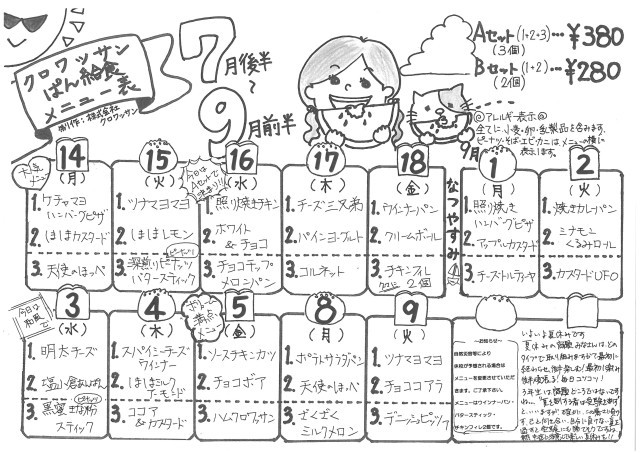 クロワッサン
ぱん給食
メニュー表
制作：株式会社
クロワッサン
7月後半
〜
9月前半
Aセット(1+2+3)…¥380
(3個)
Bセット(1+2)…¥280
(2個)
◎アレルギー表示◎
全てに、小麦・卵・乳製品を含みます。
ピーナッツ・そば・エビ・カニは、メニューの横に
表示します。
14
(月)
1.ケチャマヨ
ハンバーグピザ
2.ほしほしカスタード
3.天使のほっぺ
15
(火)
1.ツナマヨマヨ
2.ほしほしレモン
ピーナッツ
3.深煎りピーナッツ
バタースティック
今日は
Aセットで
16
(水)
1.照り焼きチキン
2.ホワイト
&チョコ
3.チョコチップ
メロンパン
17
(木)
1.チーズ三兄弟
2.パインヨーグルト
3.コルネット
18
(金)
1.ウインナーパン
2.クリームボール
3.チキンフィレ
2個
なつやすみ
9月
1
(月)
1.照り焼き
ハンバーグピザ
2.アップルカスタード
3.チーズ・トルティーヤ
2
(火)
1.焼きカレーパン
2.シナモン
くるみロール
3.カスタードUFO
今日は
和風
3
(水)
1.明太チーズ
2.塩小倉あんぱん
ピーナッツ
3.黒蜜きな粉
スティック
4
(木)
1.スパイシーチーズ
ウインナー
2.ほしほしミルク
アーモンド
3.ココア
&カスタード
メニュー
5
(金)
1.ソースチキンカツ
2.チョコボア
3.ハムクロワッサン
8
(月)
1.ポテトサラダパン
2.天使のほっぺ
3.ざくざく
ミルクメロン
9
(火)
1.ツナマヨマヨ
2.チョココアラ
3.デニッシュピッツァ
ーお知らせー
自然災害等により
学校が予想される場合は
メニューを変更させていただ
きます。ご了承下さい。
メニューはウインナーパン・
バタースティック・
チキンフィレ2個です。
いよいよ夏休みです